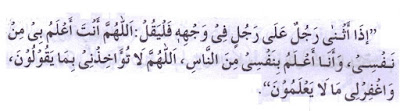 ”إِذَا أَثْنٰى رَجُلٌ عَلَى رَجُلٍ فِىْ وَجْهِهٖ فَلْيَقُلْ: اَللّٰهُمَّ أَنْتَ أَعْلَمُ بِىْ مِنْ
نَفْسِىْ، وَأَنَا أَعْلَمُ بِنَفْسِىْ مِنَ النَّاسِ، اَللّٰهُمَّ لَا تُؤَاخِذْنِىْ بِمَا يَقُوْلُوْنَ،
وَاغْفِرْلِى مَا لَا يَعْلَمُوْنَ“.